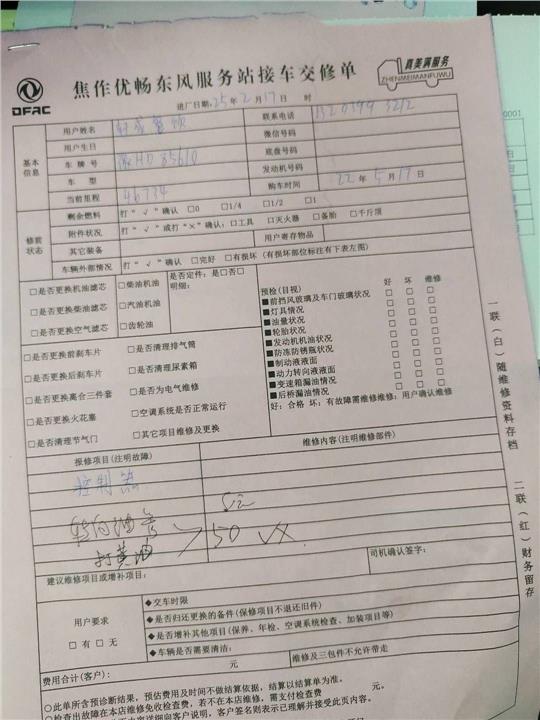 DFAC
焦作优畅东风服务站接车交修单
真美满服务
ZHENMEIMANFUWU
进厂日期:25年2月17日 时
基本信息
用户姓名
联系电话
用户生日
微信号码
车牌号 豫HD85610
底盘号码
车 型
发动机号码
当前里程 46734
购车时间 22年5月17日
修前状态
剩余燃料 打“√”确认 □0 □1/4 □1/2 □1
附件状况 打“√”或打“×”确认:□工具 □灭火器 □备胎 □千斤顶
其它装备
用户寄存物品
车辆外部情况 打“√”确认 □完好 □有损坏(有损原部位标注有下表左图)
□是否更换机油滤芯 □柴油机油
□是否更换柴油滤芯 □汽油机油
□是否更换空气滤芯 □齿轮油
是否定件:是□否□
明细:
□是否更换前刹车片 □是否清理排气筒
□是否更换后刹车片 □是否清理尿素箱
□是否更换离合三件套 □是否为电气维修
□是否更换火花塞 □空调系统是否正常运行
□是否清理节气门 □其它项目维修及更换
预检(目视) 好 坏 维修
■前挡风玻璃及车门玻璃状况 □ □ □
■灯具情况 □ □ □
■油量状况 □ □ □
■轮胎状况 □ □ □
■发动机机油状况 □ □ □
■防冻防锈瓶状况 □ □ □
■制动液液面 □ □ □
■动力转向液液面 □ □ □
■变速箱漏油情况 □ □ □
■后桥漏油情况 □ □ □
好:合格 坏:有故障需维修维修:用户确认维修
报修项目(注明故障)
维修内容(注明维修部件)
控制器
转向油管
打黄油
50
建议维修项目或增补项目:
司机确认签字:
用户要求
□有 □无
◆交车时限
◆是否归还更换的备件(保修项目不退还旧件)
◆是否增补其他项目(保养、年检、空调系统检查、加装项目等)
◆车辆是否需要清洁:
费用合计(客户): 元
维修及三包件不允许带走
○此单所含预诊断结果,预估费用及时间不做结算依据,结算以结算单为准。
○检查出故障在本店维修免收检查费,若不在本店维修,需支付检查费 元。
客户签名则表示已理解并接受此页内容。
一联(白)随维修资料存档
二联(红)财务留存